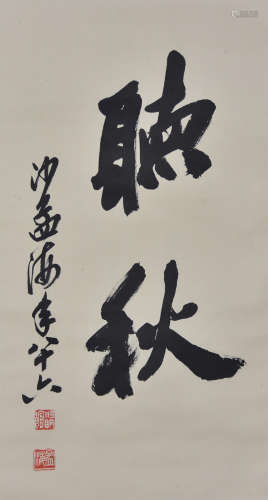 聽秋
沙孟海年八十六